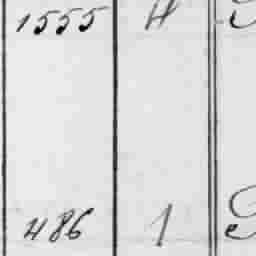 1555 4
486 1